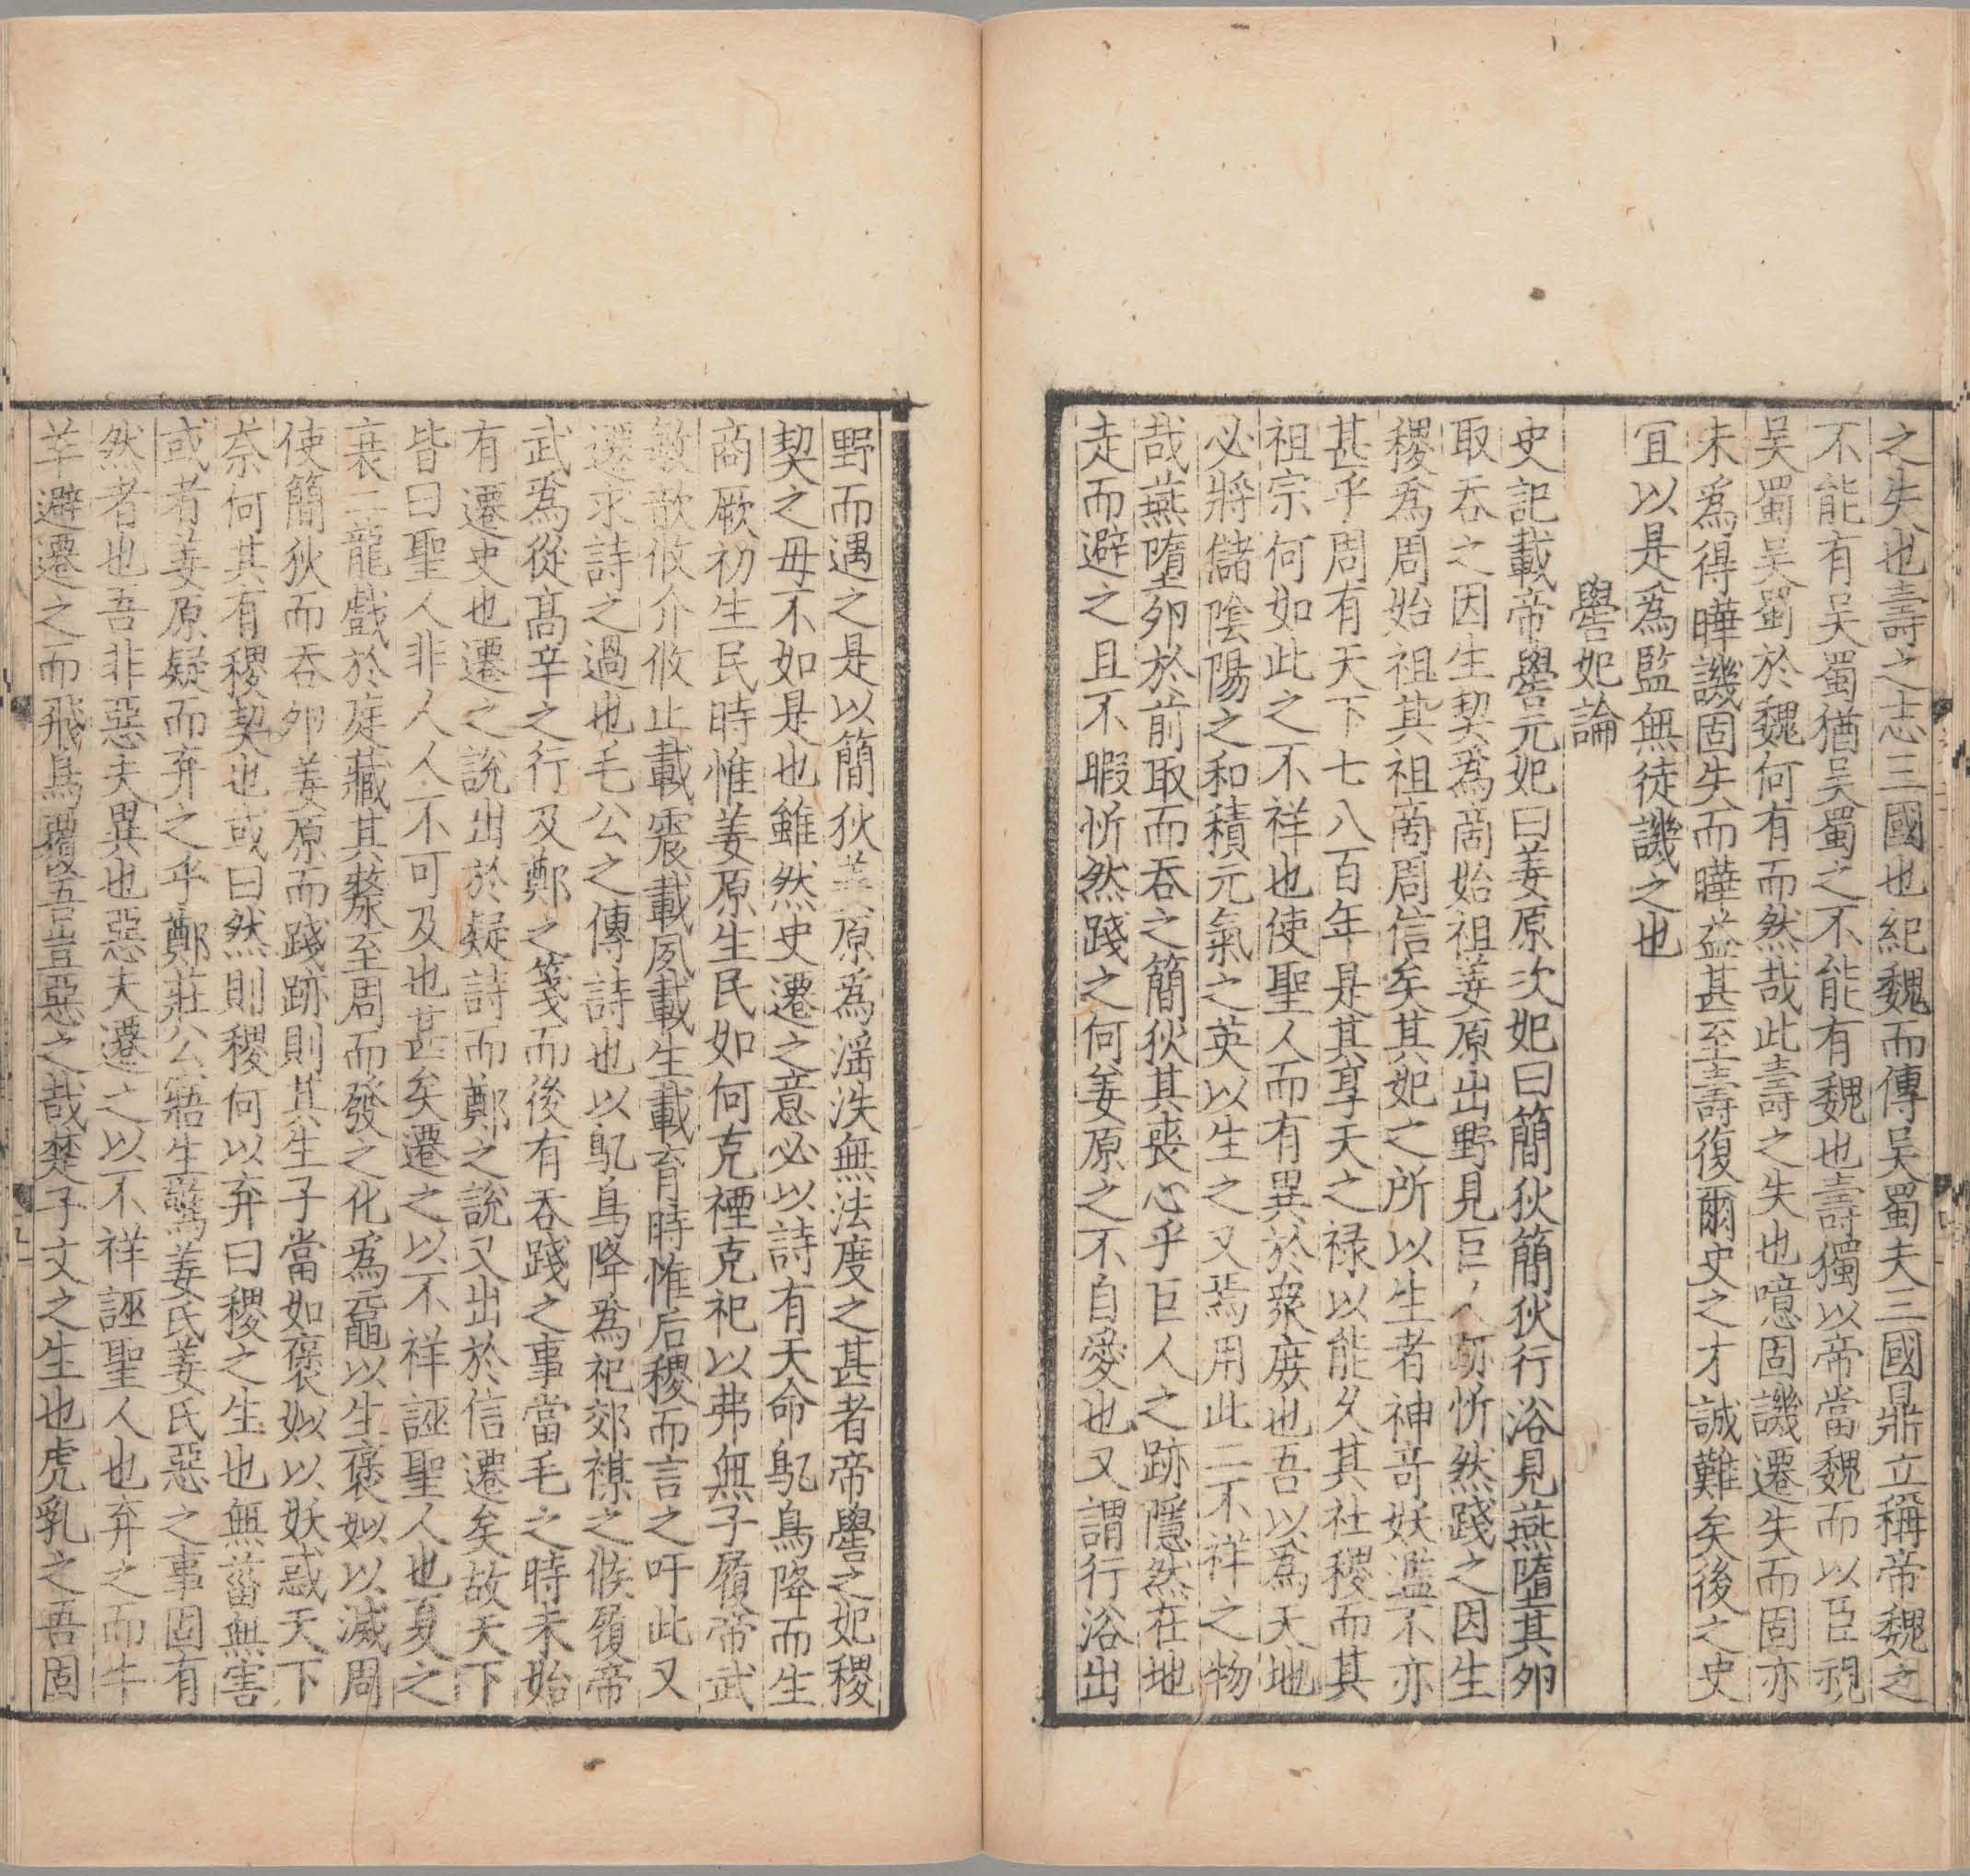 之失也壽之志三國也紀魏而傳吳蜀夫三國鼎立稱帝魏之
不能有吳蜀猶吳蜀之不能有魏也壽獨以帝當魏而以臣視
吳蜀吳蜀於魏何有而然哉此壽之失也噫固譏遷失而固亦
未爲得曄譏固失而曄益甚至壽復爾史之才誠難矣後之史
冝以是爲監無徒譏之也
嚳妃論
史記載帝嚳元妃曰姜原次妃曰簡狄簡狄行浴見燕墮其卵
取吞之因生契爲商始祖姜原出野見巨人跡忻然踐之因生
稷爲周始祖其祖商周信矣其妃之所以生者神奇妖濫不亦
甚乎周有天下七八百年是其享天之禄以能久其社稷而其
祖宗何如此之不祥也使聖人而有異於衆庶也吾以爲天地
必將儲隂陽之和積元氣之英以生之又焉用此二不祥之物
哉燕墮卵於前取而吞之簡狄其喪心乎巨人之跡隱然在地
走而避之且不暇忻然踐之何姜原之不自愛也又謂行浴出
野而遇之是以簡狄姜原爲滛泆無法度之甚者帝嚳之妃稷
契之毋不如是也雖然史遷之意必以詩有天命鳦鳥降而生
商厥初生民時惟姜原生民如何克禋克祀以弗無子履帝武
敏歆攸介攸止載震載夙載生載育時惟后稷而言之吁此又
遷求詩之過也毛公之傳詩也以鳦鳥降爲祀郊禖之候履帝
武爲從髙辛之行及鄭之箋而後有吞踐之事當毛之時未始
有遷史也遷之說出於疑詩而鄭之說又出於信遷矣故天下
皆曰聖人非人人不可及也甚矣遷之以不祥誣聖人也夏之
衰二龍戲於庭藏其漦至周而發之化爲黿以生褒姒以滅周
使簡狄而吞卵姜原而踐跡則其生子當如褒姒以妖惑天下
奈何其有稷契也或曰然則稷何以弃曰稷之生也無菑無害
或者姜原疑而弃之乎鄭莊公寤生驚姜氏姜氏惡之事固有
然者也吾非惡夫異也惡夫遷之以不祥誣聖人也弃之而牛
羊避遷之而飛鳥覆吾豈惡之哉楚子文之生也虎乳之吾固